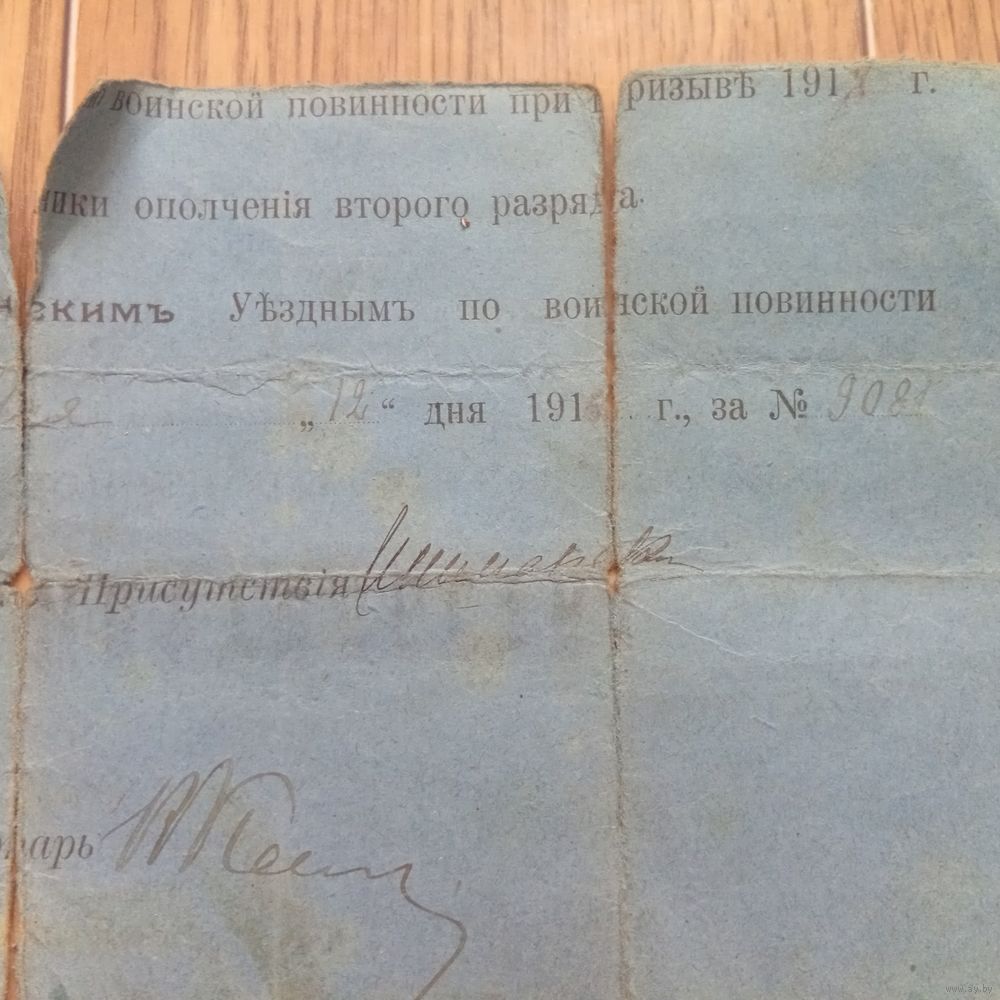 воинской повинности при призывѣ 191 г.
ники ополченія второго разряда.
нскимъ Уѣзднымъ по воинской повинности
„12“ дня 191 г., за №
Присутствія
арь
www.ay.by